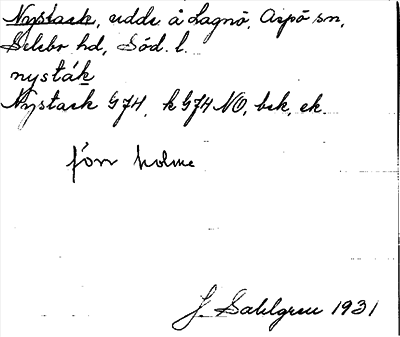 Nystack, udde å Lagnö, Aspö sn,
Selebo hd, Söd. l.
nysták
Nystack G74, k G74 NO, bek, ek.
förr holme
J. Sahlgren 1931